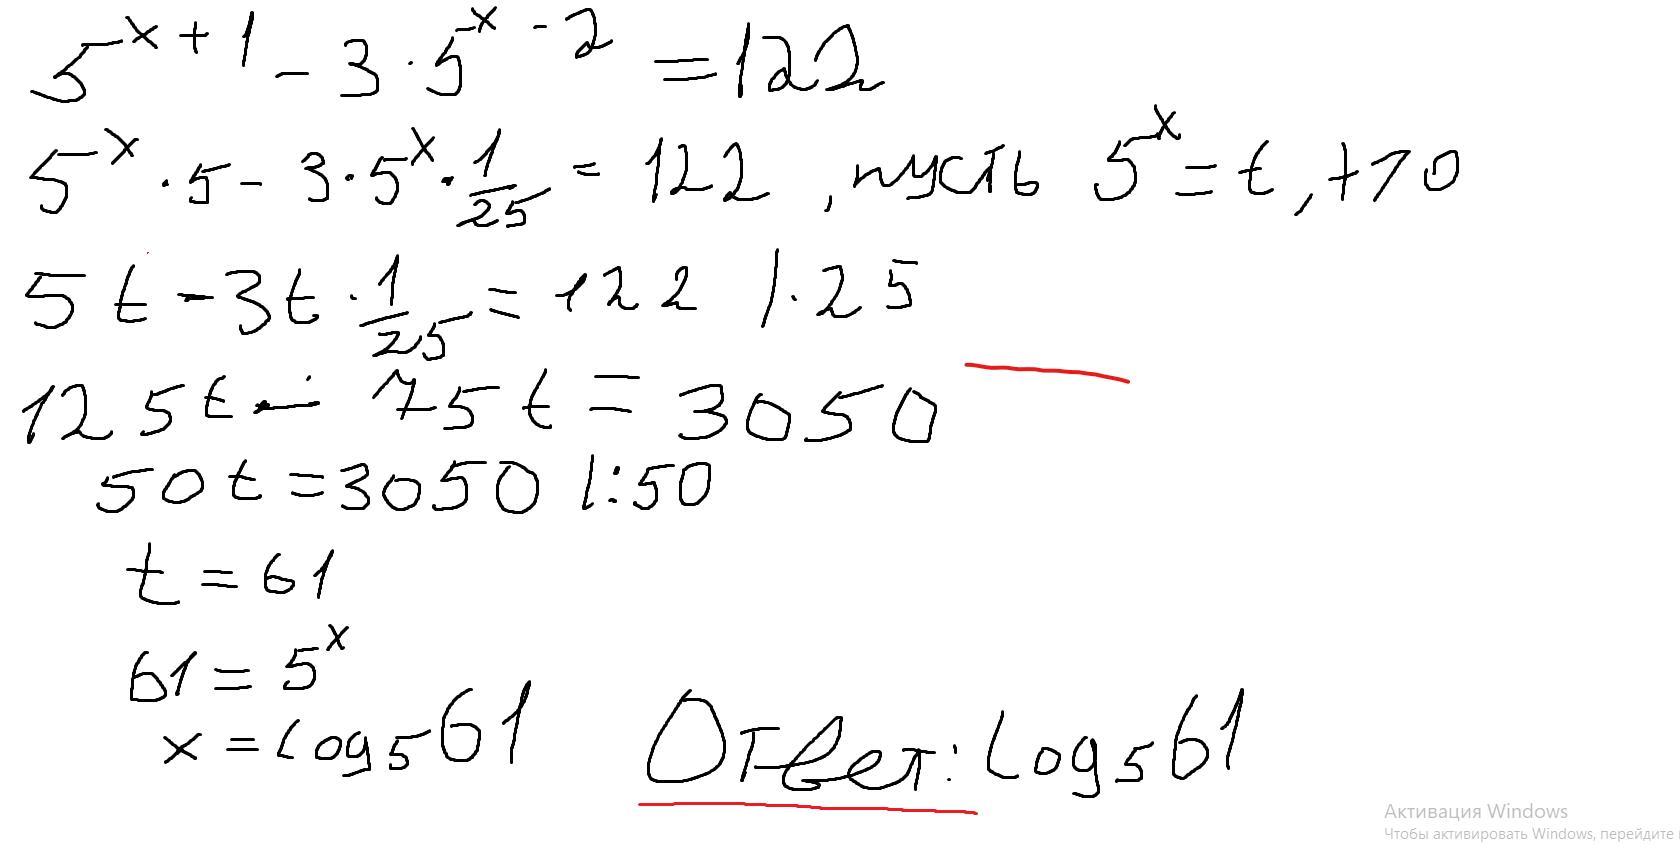 5^{x+1} - 3 · 5^{x-2} = 122
5^x · 5 - 3 · 5^x · 1/25 = 122 , пусть 5^x = t, t>0
5t - 3t · 1/25 = 122 | · 25
125t - 75t = 3050
50t = 3050 | : 50
t = 61
61 = 5^x
x = log₅61 Ответ: log₅61
Активация Windows
Чтобы активировать Windows, перейдите